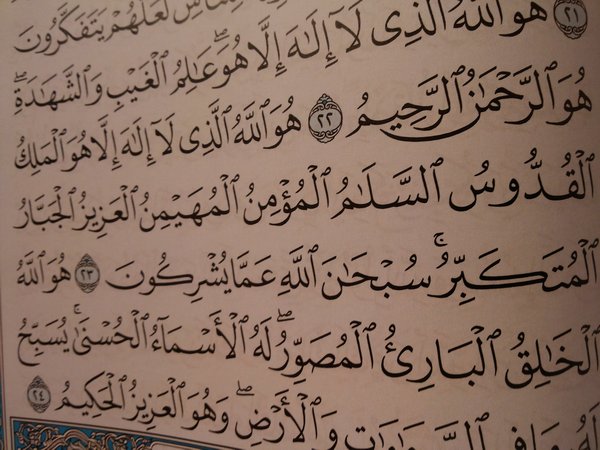 لِلنَّاسِ لَعَلَّهُمْ يَتَفَكَّرُونَ
٢١ هُوَ ٱللَّهُ ٱلَّذِى لَآ إِلَٰهَ إِلَّا هُوَ ۖ عَٰلِمُ ٱلْغَيْبِ وَٱلشَّهَٰدَةِ ۖ
هُوَ ٱلرَّحْمَٰنُ ٱلرَّحِيمُ ٢٢ هُوَ ٱللَّهُ ٱلَّذِى لَآ إِلَٰهَ إِلَّا هُوَ ٱلْمَلِكُ
ٱلْقُدُّوسُ ٱلسَّلَٰمُ ٱلْمُؤْمِنُ ٱلْمُهَيْمِنُ ٱلْعَزِيزُ ٱلْجَبَّارُ
ٱلْمُتَكَبِّرُ ۚ سُبْحَٰنَ ٱللَّهِ عَمَّا يُشْرِكُونَ ٢٣ هُوَ ٱللَّهُ
ٱلْخَٰلِقُ ٱلْبَارِئُ ٱلْمُصَوِّرُ ۖ لَهُ ٱلْأَسْمَآءُ ٱلْحُسْنَىٰ ۚ يُسَبِّحُ
لَهُۥ مَا فِى ٱلسَّمَٰوَٰتِ وَٱلْأَرْضِ ۖ وَهُوَ ٱلْعَزِيزُ ٱلْحَكِيمُ ٢٤